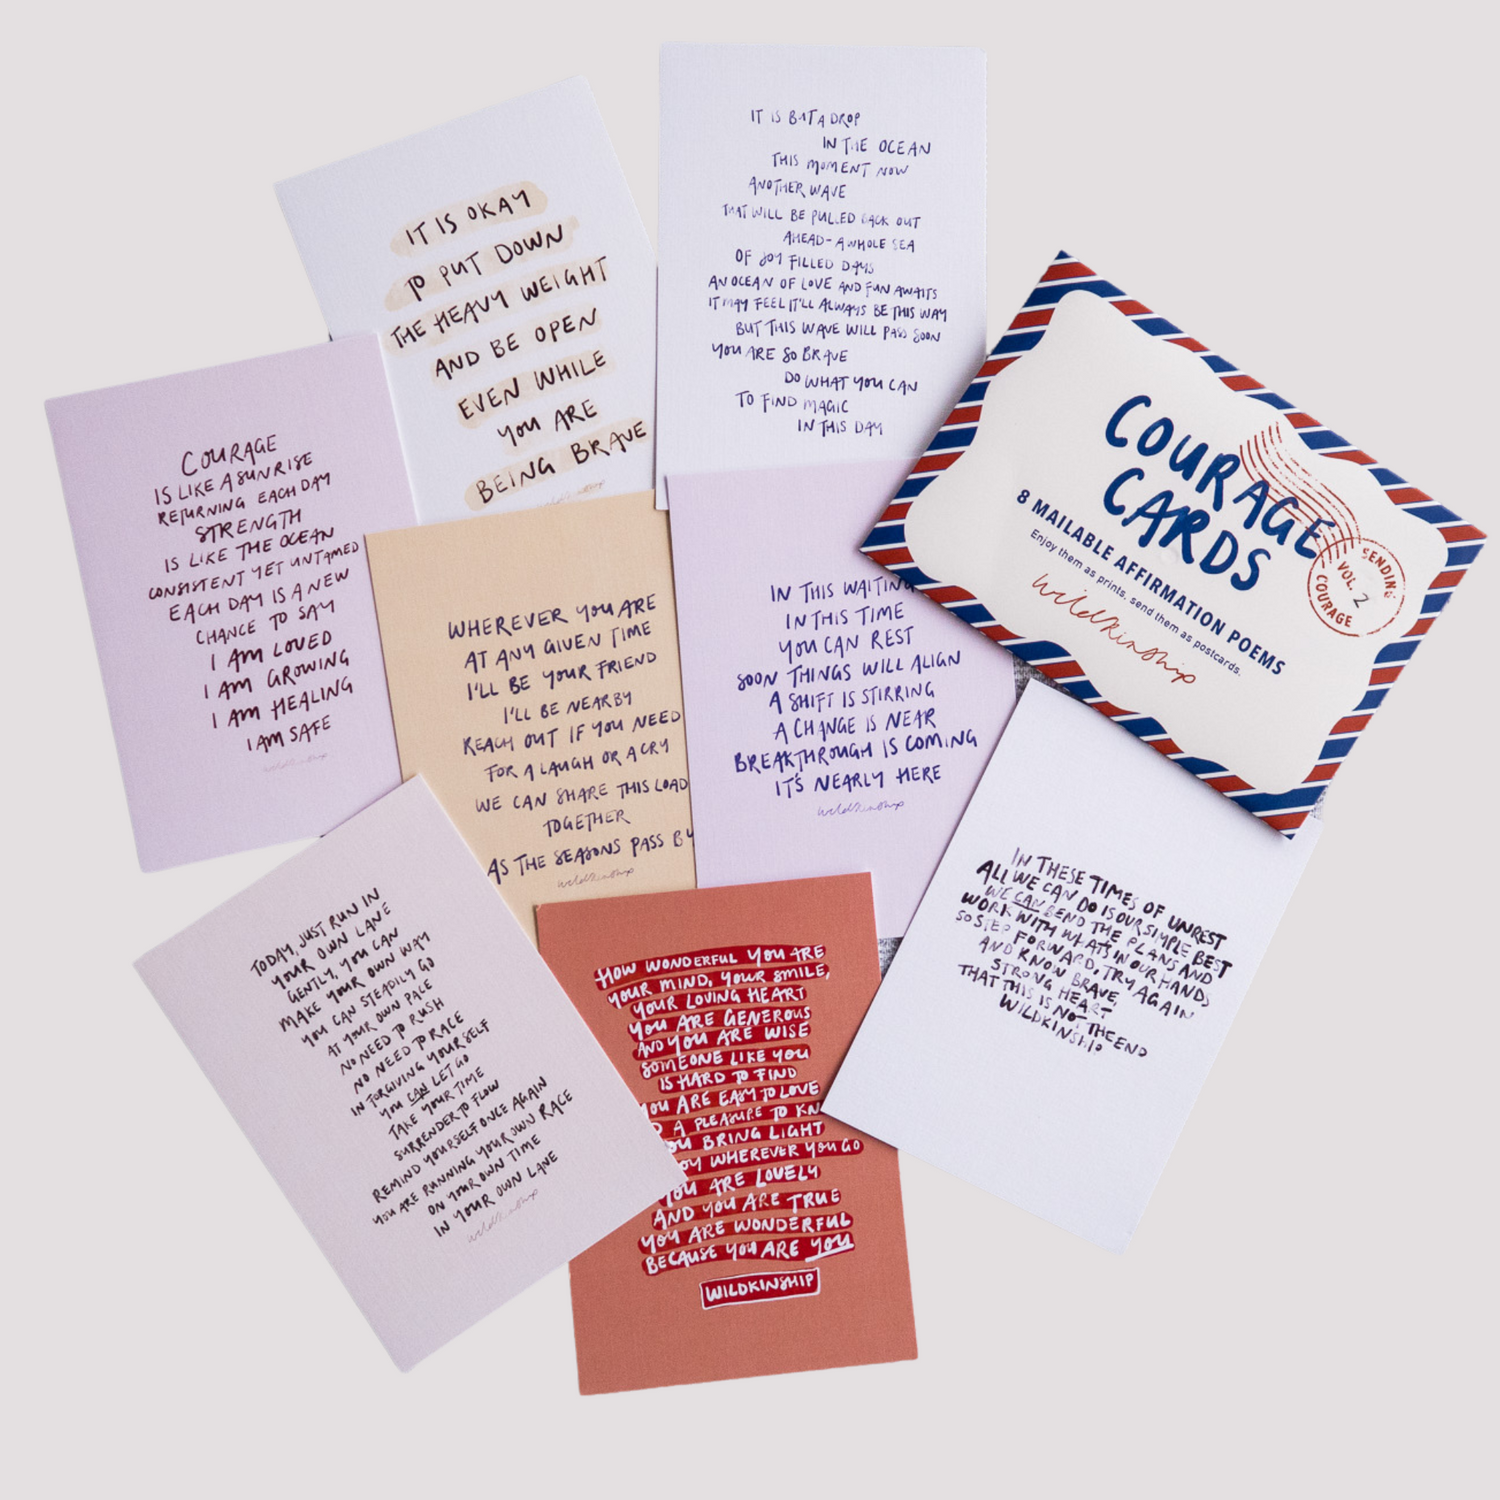 IT IS OKAY
TO PUT DOWN
THE HEAVY WEIGHT
AND BE OPEN
EVEN WHILE
YOU ARE
BEING BRAVE
IT IS BUT A DROP
IN THE OCEAN
THIS MOMENT NOW
ANOTHER WAVE
THAT WILL BE PULLED BACK OUT
AHEAD - A WHOLE SEA
OF JOY FILLED DAYS
AN OCEAN OF LOVE AND FUN AWAITS
IT MAY FEEL IT'LL ALWAYS BE THIS WAY
BUT THIS WAVE WILL PASS SOON
YOU ARE SO BRAVE
DO WHAT YOU CAN
TO FIND MAGIC
IN THIS DAY
COURAGE
CARDS
8 MAILABLE AFFIRMATION POEMS
Enjoy them as prints, send them as postcards.
wildkinship
SENDING
VOL. 2
COURAGE
COURAGE
IS LIKE A SUNRISE
RETURNING EACH DAY
STRENGTH
IS LIKE THE OCEAN
CONSISTENT YET UNTAMED
EACH DAY IS A NEW
CHANCE TO SAY
I AM LOVED
I AM GROWING
I AM HEALING
I AM SAFE
wildkinship
WHEREVER YOU ARE
AT ANY GIVEN TIME
I'LL BE YOUR FRIEND
I'LL BE NEARBY
REACH OUT IF YOU NEED
FOR A LAUGH OR A CRY
WE CAN SHARE THIS LOAD
TOGETHER
AS THE SEASONS PASS BY
wildkinship
IN THIS WAITING
IN THIS TIME
YOU CAN REST
SOON THINGS WILL ALIGN
A SHIFT IS STIRRING
A CHANGE IS NEAR
BREAKTHROUGH IS COMING
IT'S NEARLY HERE
wildkinship
IN THESE TIMES OF UNREST
ALL WE CAN DO IS OUR SIMPLE BEST
WE CAN BEND THE PLANS AND
WORK WITH WHAT'S IN OUR HANDS
SO STEP FORWARD, TRY AGAIN
AND KNOW BRAVE,
STRONG HEART
THAT THIS IS NOT THE END
WILDKINSHIP
TODAY JUST RUN IN
YOUR OWN LANE
GENTLY, YOU CAN
MAKE YOUR OWN WAY
YOU CAN STEADILY GO
AT YOUR OWN PALE
NO NEED TO RUSH
NO NEED TO RACE
IN FORGIVING YOURSELF
YOU CAN LET GO
TAKE YOUR TIME
SURRENDER TO FLOW
REMIND YOURSELF ONCE AGAIN
YOU ARE RUNNING YOUR OWN RACE
ON YOUR OWN TIME
IN YOUR OWN LANE
wildkinship
HOW WONDERFUL YOU ARE
YOUR MIND, YOUR SMILE,
YOUR LOVING HEART
YOU ARE GENEROUS
AND YOU ARE WISE
SOMEONE LIKE YOU
IS HARD TO FIND
YOU ARE EASY TO LOVE
A PLEASURE TO KN
YOU BRING LIGHT
OY WHEREVER YOU GO
YOU ARE LOVELY
AND YOU ARE TRUE
YOU ARE WONDERFUL
BECAUSE YOU ARE YOU
WILDKINSHIP